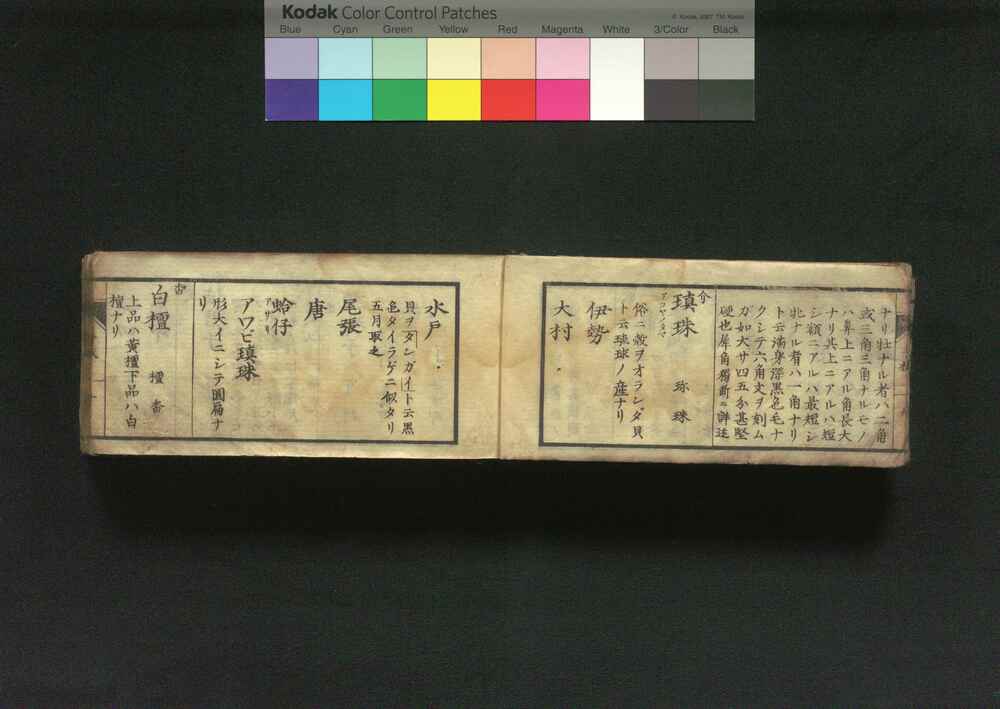 Kodak Color Control Patches
© Kodak, 2007 TM: Kodak
Blue Cyan Green Yellow Red Magenta White 3/Color Black
ナリ牡ナル者ハ二角
或三角三角ナルモノ
ハ鼻上ニアル角長大
ナリ其上ニアルハ短
シ額ニアルハ最短シ
牝ナル者ハ一角ナリ
ト云満身深黒色毛ナ
クシテ六角文ヲ刻ム
ガ如大サ四五分甚堅
硬也犀角獨断ニ詳述
介
瑱珠 珎珠
アコヤノタマ
俗ニ殻ヲオランダ貝
ト云琉球ノ産ナリ
伊勢
大村
水戸
貝ヲタンガイト云黒
色タイラゲニ似タリ
五月取之
尾張
唐
蛤仔
アサリ
アワビ瑱珠
形大イニシテ圓扁ナ
リ
白檀 檀香
上品ハ黄檀下品ハ白
檀ナリ